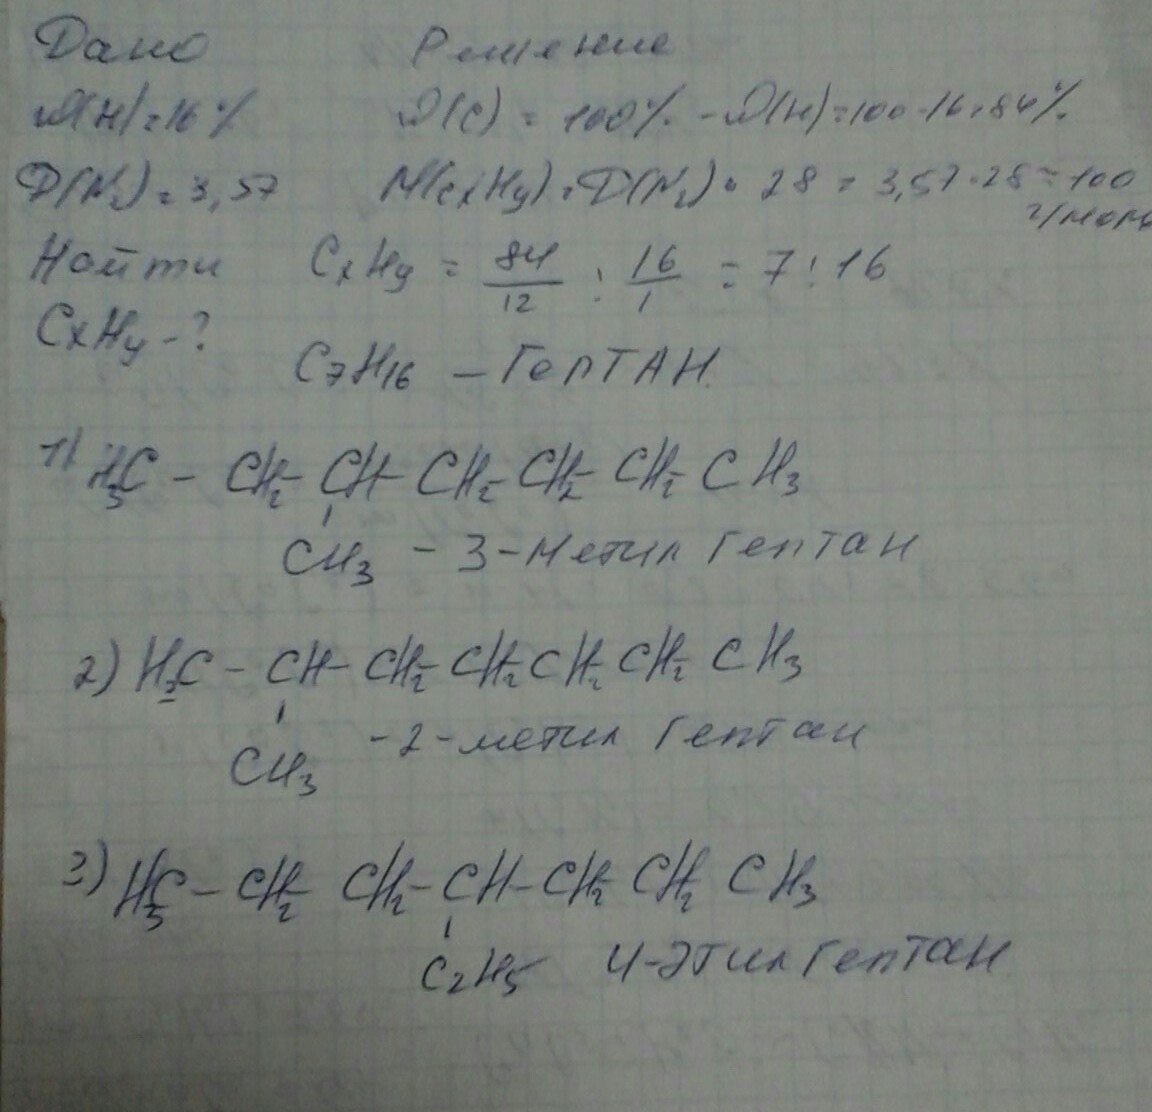 Дано Решение
ω(H)=16% ω(C) = 100% - ω(H)=100-16=84%
D(N₂)=3,57 M(CxHy)=D(N₂)·28=3,57·28=100 г/моль
Найти CxHy = 84/12 : 16/1 = 7:16
CxHy-?
C₇H₁₆ – Гептан.
1) H₃C – CH₂– CH– CH₂– CH₂– CH₂– CH₃
CH₃ – 3-метил гептан
2) H₃C – CH– CH₂– CH₂ CH₂ CH₂ CH₃
CH₃ -2-метил гептан
3) H₃C – CH₂– CH₂– CH–CH₂ CH₂ CH₃
C₂H₅ 4-этил гептан